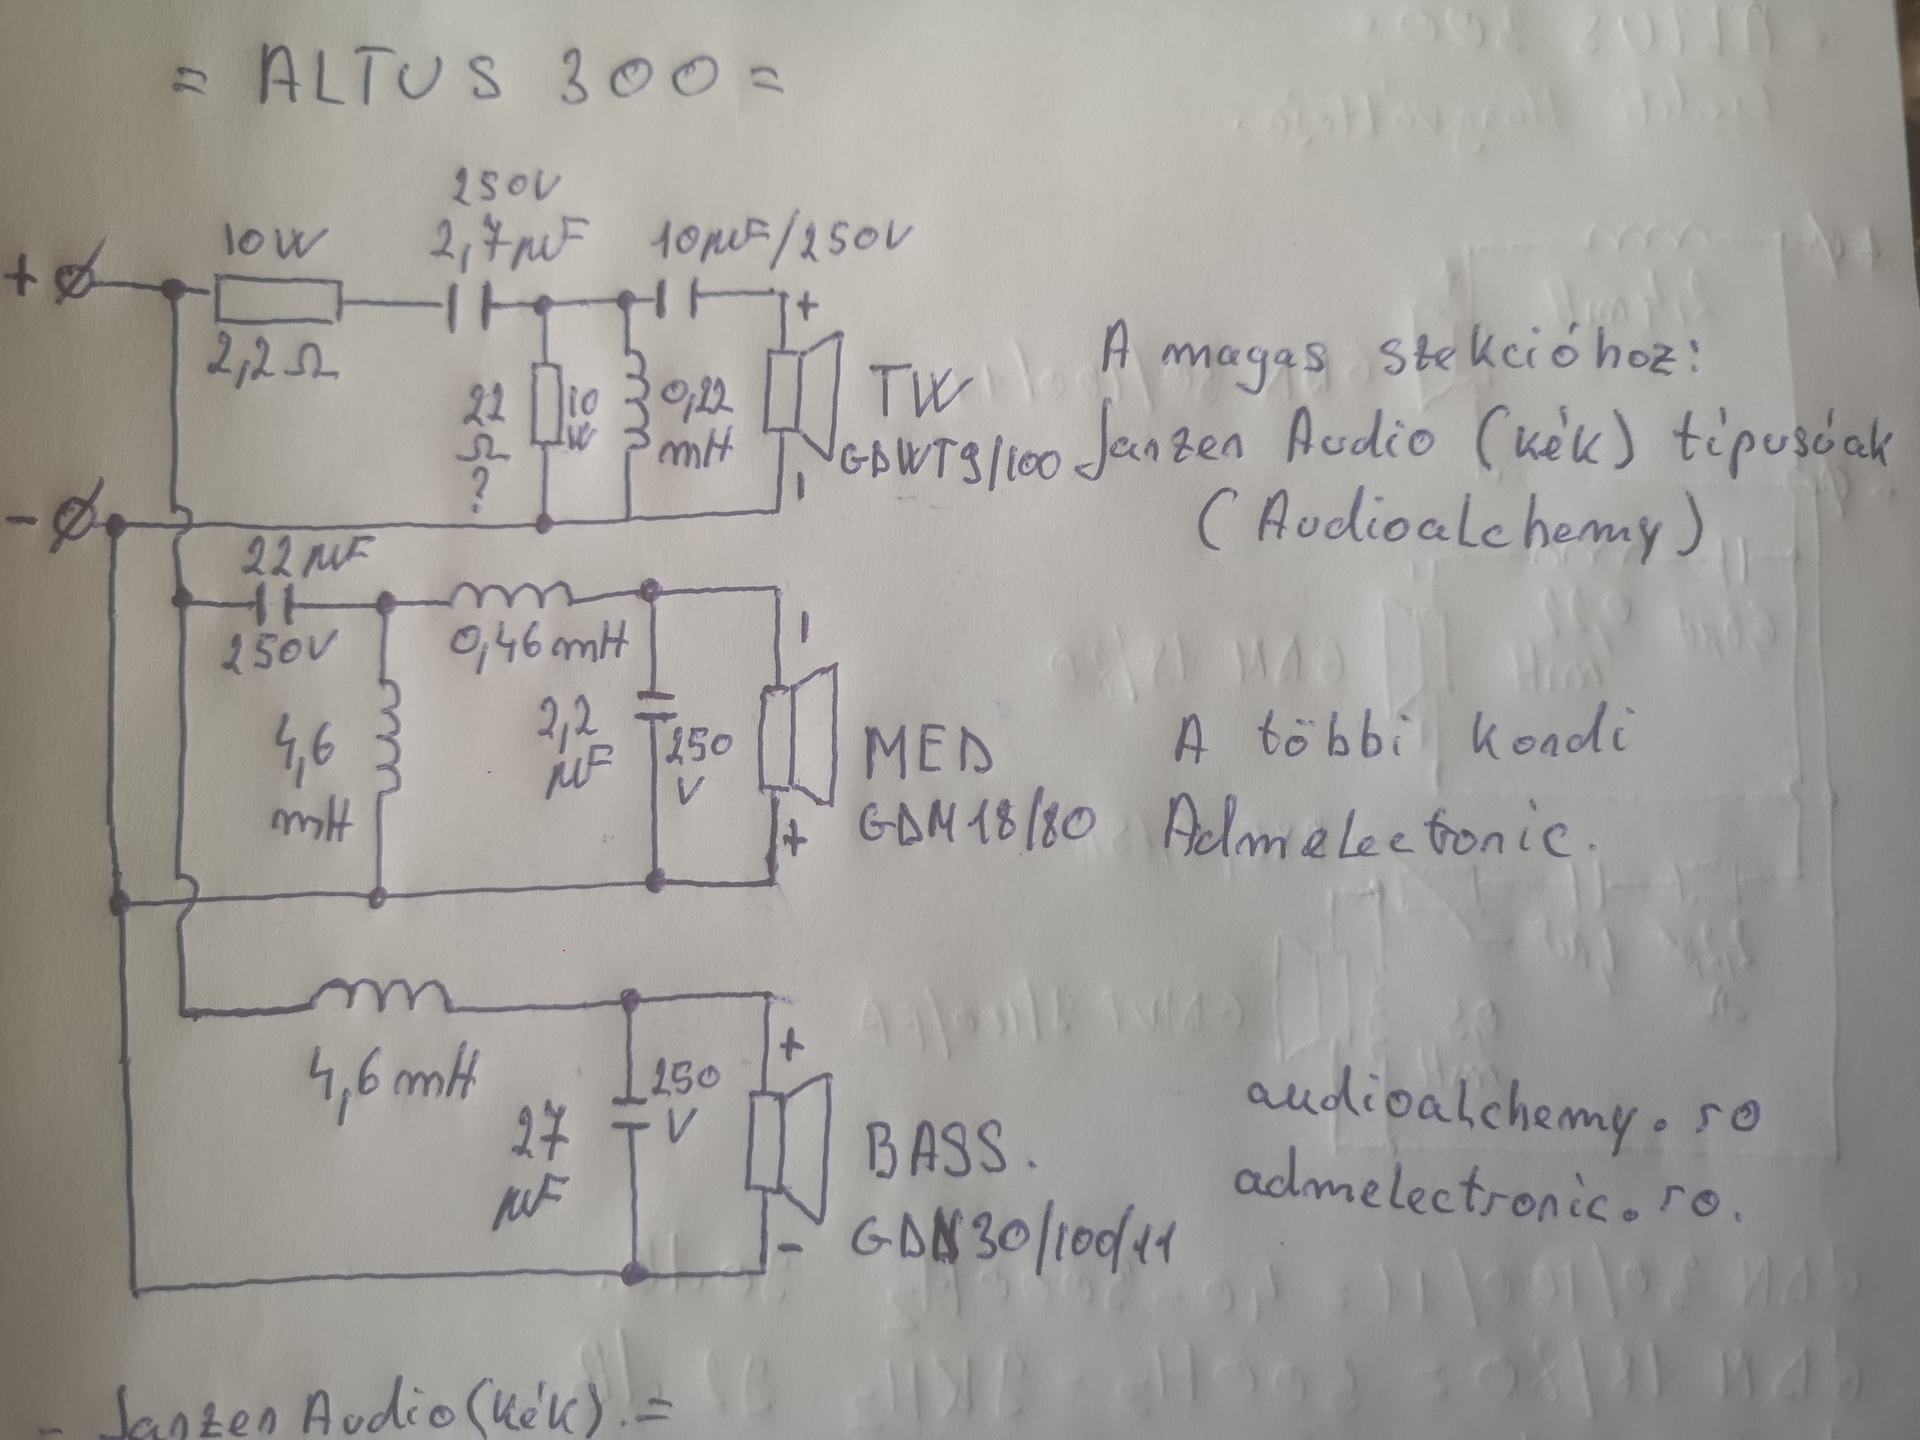 = ALTUS 300 =
250V
10W
2,7µF
10µF/250V
+
2,2Ω
+
22
Ω
?
10
W
0,22
mH
TW
GDWT9/100
-
-
A magas szekcióhoz:
Janzen Audio (kék) típusúak
(Audioalchemy)
22µF
250V
0,46mH
-
4,6
mH
2,2
µF
250
V
MED
GDM18/80
+
A többi kondi
Admelectonic.
4,6mH
+
27
µF
250
V
BASS.
GDN30/100/11
-
audioalchemy.ro
admelectronic.ro.
- Janzen Audio (kék).=